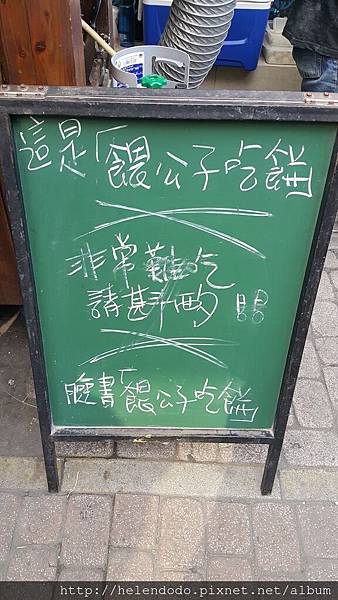 這是「餵公子吃餅」
非常難吃
請斟酌
臉書「餵公子吃餅」
http://helendodo.pixnet.net/album